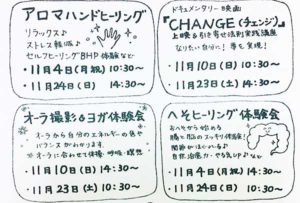 アロマハンドヒーリング
リラックス♪
ストレス軽減♪
セルフヒーリングBHP体験など
・11月4日(月祝) 10:30〜
・11月24日(日) 14:30〜
ドキュメンタリー映画
『CHANGE(チェンジ)』
上映&引き寄せ法則実践講座
なりたい自分に!夢も実現!
・11月10日(日) 10:30〜
・11月23日(土) 14:30〜
オーラ撮影&ヨガ体験会
オーラから自分のエネルギーの色や
バランスがわかります
※オーラに合わせて体操・呼吸・瞑想
・11月10日(日) 14:30〜
・11月23日(土) 10:30〜
へそヒーリング体験会
おへそから始める
腸と脳のスッキリ体験!
関節がほぐれる♪
自然治癒力・やる気UP♪など
・11月4日(月祝) 14:30〜
・11月24日(日) 10:30〜